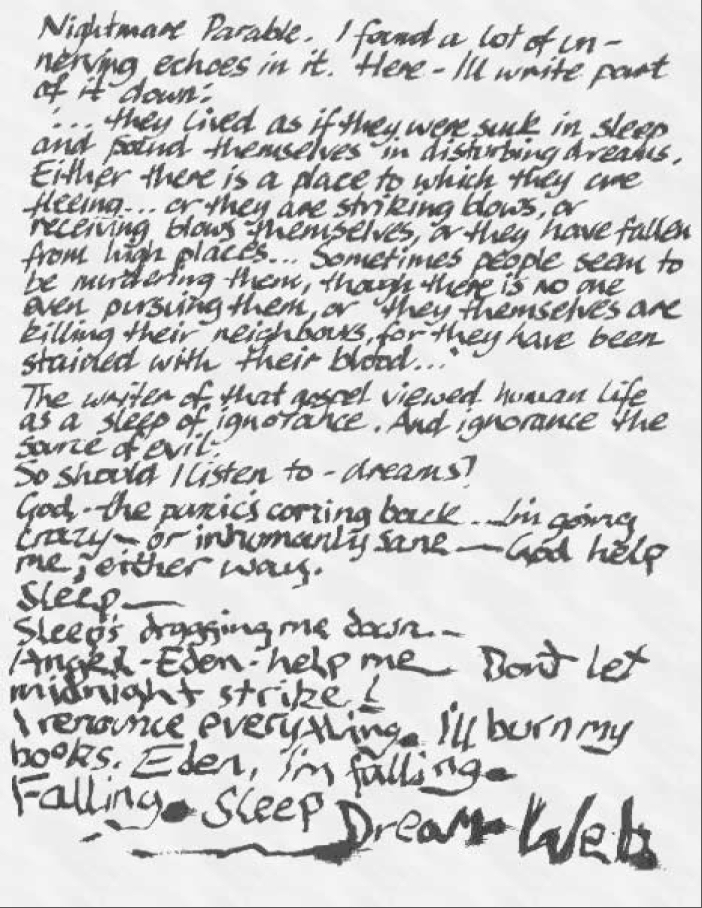 Nightmare Parable. I found a lot of un-
nerving echoes in it. Here - I'll write part
of it down:
'... they lived as if they were sunk in sleep
and found themselves in disturbing dreams.
Either there is a place to which they are
fleeing... or they are striking blows, or
receiving blows themselves, or they have fallen
from high places... Sometimes people seem to
be murdering them, though there is no one
even pursuing them, or they themselves are
killing their neighbours, for they have been
stained with their blood...'
The writer of that gospel viewed human life
as a sleep of ignorance. And ignorance the
source of evil.
So should I listen to - dreams?
God - the panic's coming back... I'm going
crazy - or inhumanly sane - God help
me, either way.
Sleep -
Sleep's dragging me down -
Angel - Eden - help me Don't let
midnight strike!
I renounce everything. I'll burn my
books. Eden, I'm falling.
Falling. Sleep Dream Web.